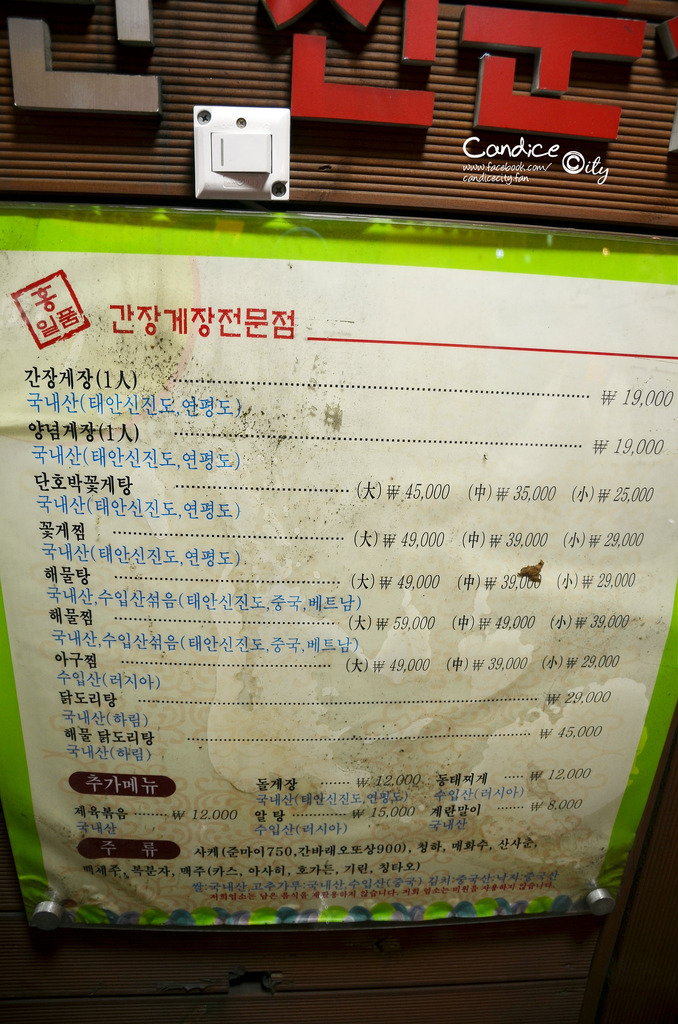 Candice ©ity
www.facebook.com/
candicecity.fan
홍
일품
간장게장전문점
간장게장(1人) ₩ 19,000
국내산(태안신진도,연평도)
양념게장(1人) ₩ 19,000
국내산(태안신진도,연평도)
단호박꽃게탕 (大) ₩ 45,000 (中) ₩ 35,000 (小) ₩ 25,000
국내산(태안신진도,연평도)
꽃게찜 (大) ₩ 49,000 (中) ₩ 39,000 (小) ₩ 29,000
국내산(태안신진도,연평도)
해물탕 (大) ₩ 49,000 (中) ₩ 39,000 (小) ₩ 29,000
국내산,수입산섞음(태안신진도,중국,베트남)
해물찜 (大) ₩ 59,000 (中) ₩ 49,000 (小) ₩ 39,000
국내산,수입산섞음(태안신진도,중국,베트남)
아구찜 (大) ₩ 49,000 (中) ₩ 39,000 (小) ₩ 29,000
수입산(러시아)
닭도리탕 ₩ 29,000
국내산(하림)
해물 닭도리탕 ₩ 45,000
국내산(하림)
추가메뉴 돌게장 ₩ 12,000 동태찌게 ₩ 12,000
국내산(태안신진도,연평도) 수입산(러시아)
제육볶음 ₩ 12,000 알 탕 ₩ 15,000 계란말이 ₩ 8,000
국내산 수입산(러시아) 국내산
주 류 사케(준마이750,간바레오또상900), 청하, 매화수, 산사춘,
백세주, 복분자, 맥주(카스, 아사히, 호가든, 기린, 칭타오)
쌀:국내산,고추가루:국내산,수입산(중국) 김치:중국산,낙지:중국산
저희업소는 남은 음식을 재탕용하지 않습니다. 저희 업소는 미원을 사용하지 않습니다.